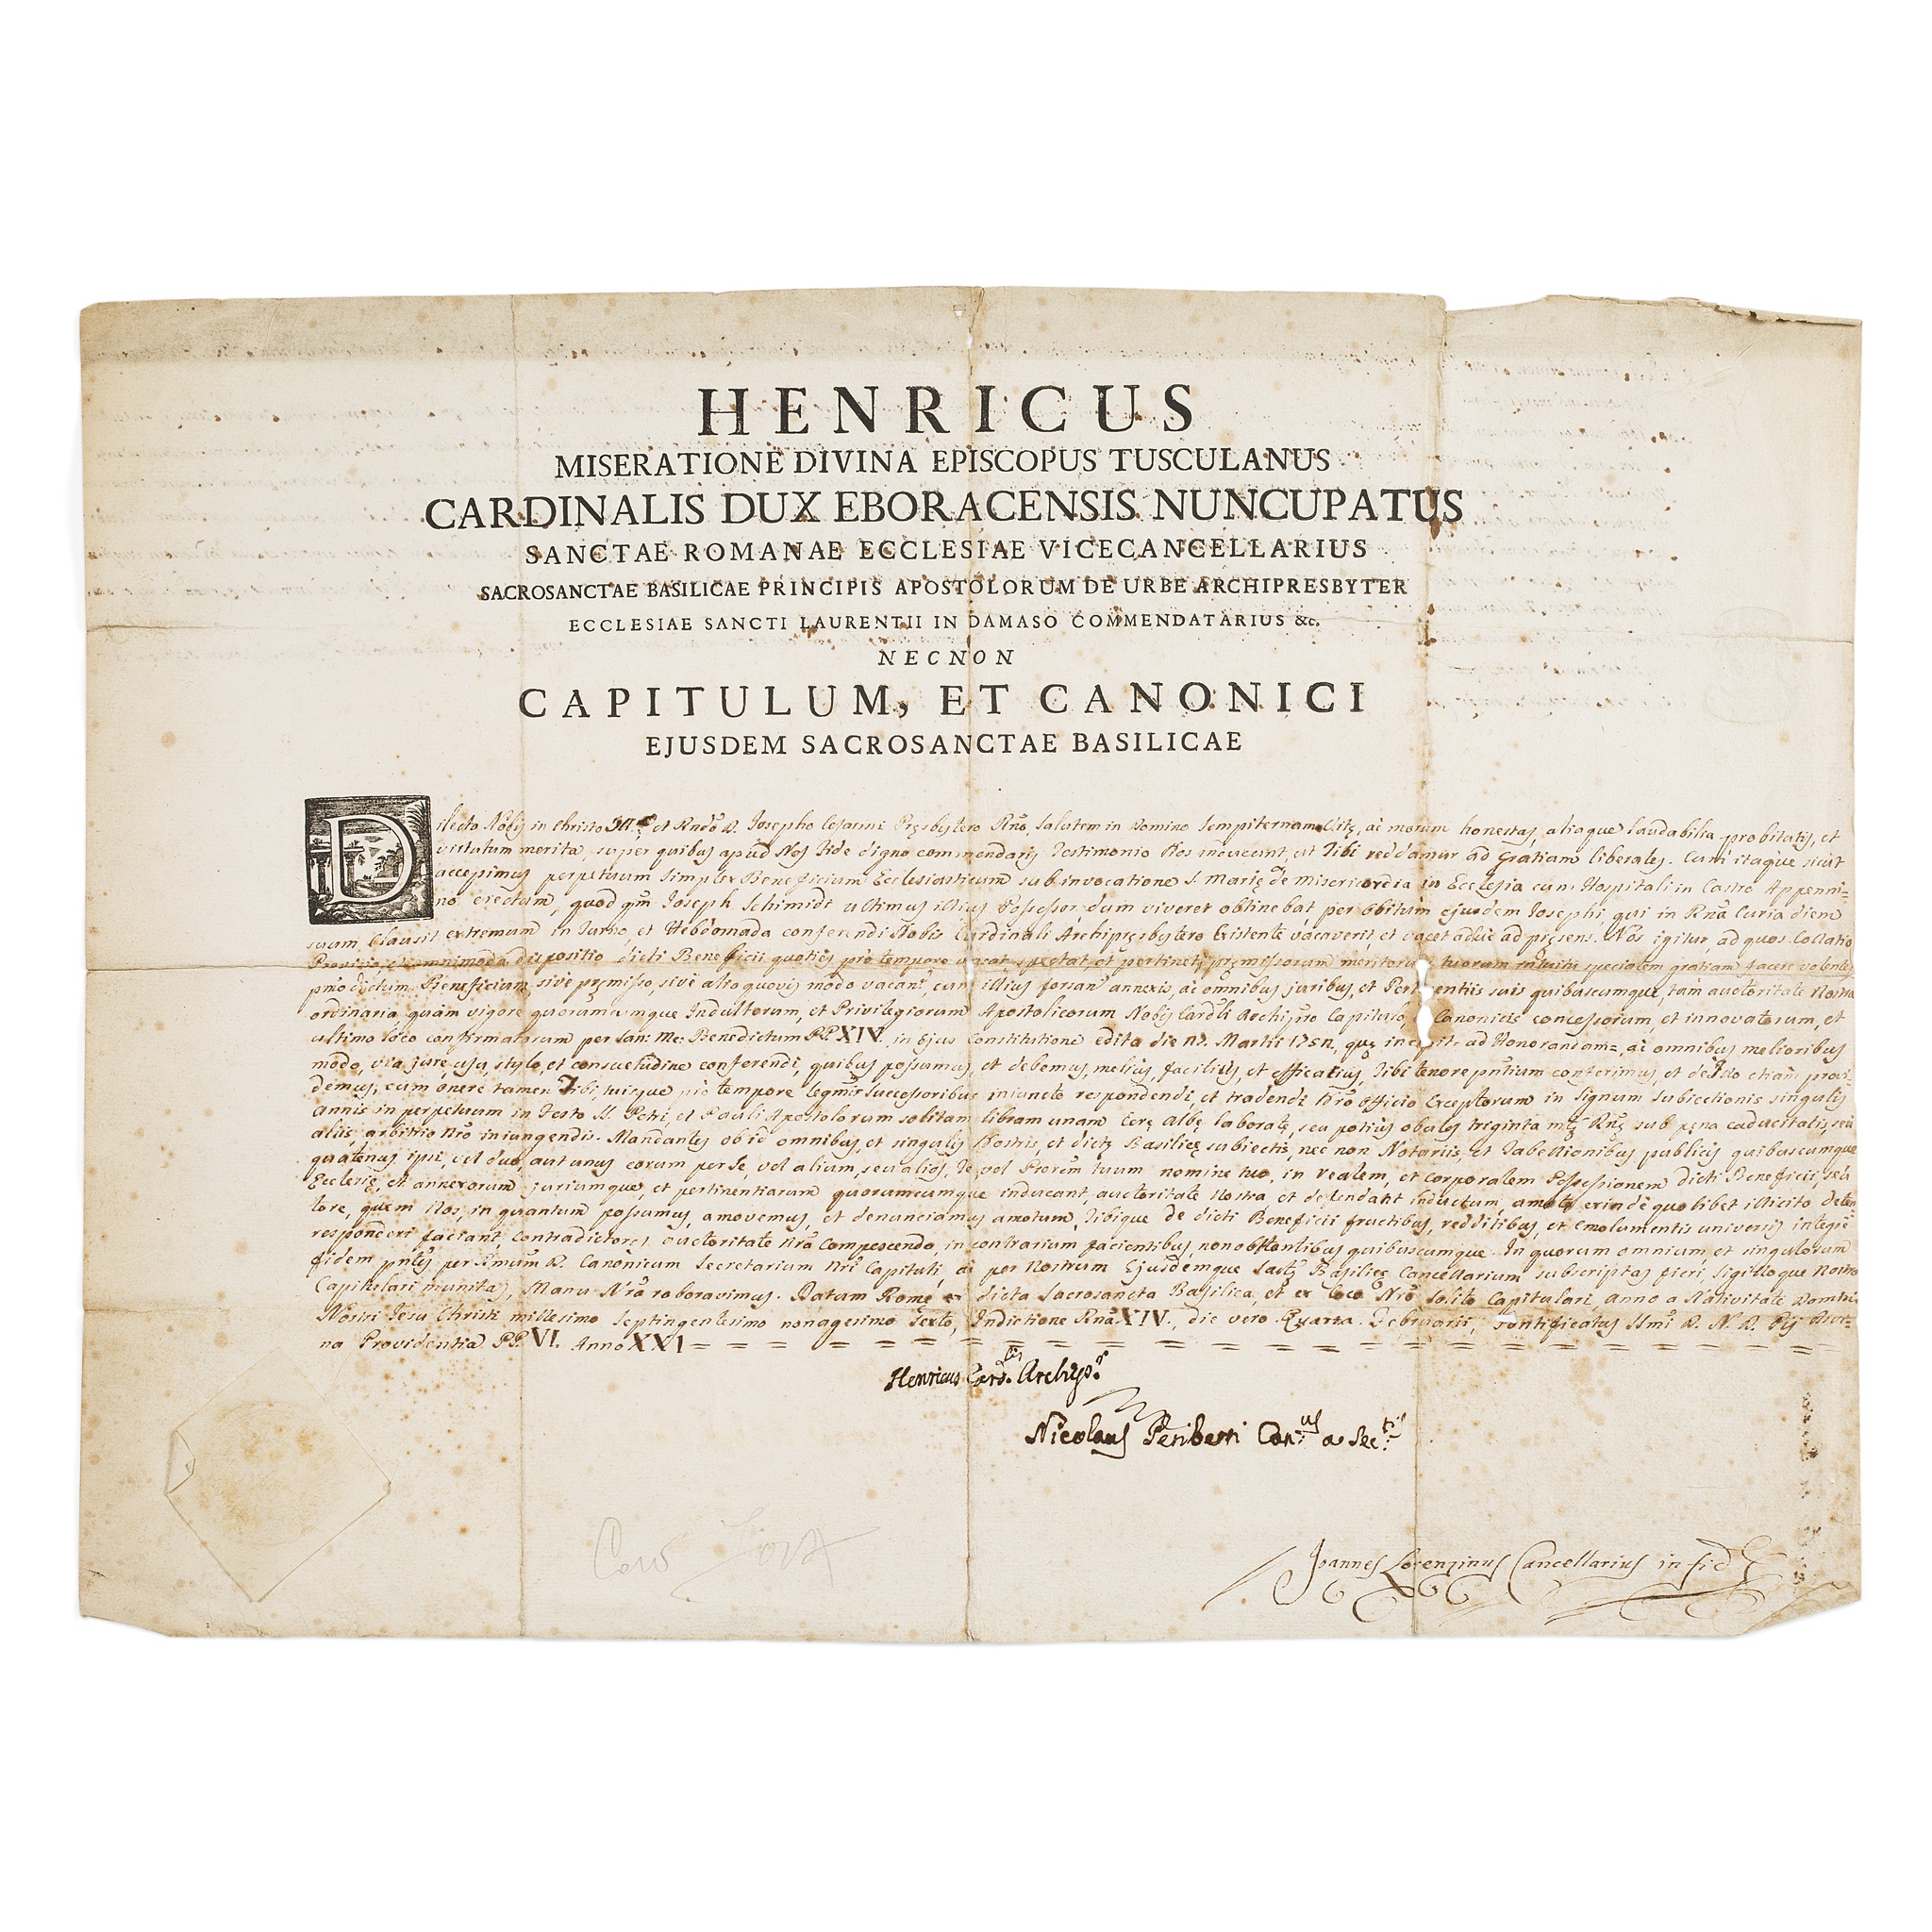 HENRICUS
MISERATIONE DIVINA EPISCOPUS TUSCULANUS
CARDINALIS DUX EBORACENSIS NUNCUPATUS
SANCTAE ROMANAE ECCLESIAE VICECANCELLARIUS
SACROSANCTAE BASILICAE PRINCIPIS APOSTOLORUM DE URBE ARCHIPRESBYTER
ECCLESIAE SANCTI LAURENTII IN DAMASO COMMENDATARIUS &c.
NECNON
CAPITULUM, ET CANONICI
EJUSDEM SACROSANCTAE BASILICAE
Dilecto Nobis in Christo et Rndo D. Josepho Presbytero Rno, Salutem in Domino Sempiternam. Vitę, ac morum honestas, aliaque laudabilia probitatis, et
virtutum merita, super quibus apud Nos fide digno commendaris Testimonio Nos inducunt, ut Tibi reddamur ad gratiam liberales. Cum itaque sicut
accepimus perpetuum Simplex Beneficium Ecclesiasticum sub invocatione S. Marię de Misericordia in Ecclesia cum Hospitali in Castro Appenni=
no erectum, quod qm Joseph Schimidt ultimus illius Possessor, dum viveret obtinebat per obitum ejusdem Josephi, qui in Rna Curia diem
suum clausit extremum in Turno, et Hebdomada conferendi Nobis Cardinali Archipręsbytero Existente vacaverit, et vacet adhuc ad pręsens. Nos igitur, ad quos Collatio
Provisio, et omnimoda dispositio dicti Beneficii quoties pro tempore vacat, spectat, et pertinet, pręmissorum meritorum tuorum intuitu specialem gratiam facere volentes
dictum Beneficium, sive pręmisso, sive alio quovis modo vacans, cum illius forsan annexis, ac omnibus juribus, et Pertinentiis suis quibuscumque, tam auctoritate Nostra
ordinaria, quàm vigore quorumcumque Indultorum, et Privilegiorum Apostolicorum Nobis Cardli Archipro Capitulo, Canonicis concessorum, et innovatorum, et
ultimo loco confirmatorum per San: Me: Benedictum PP. XIV. in Ejus Constitutione edita die Martii quę incipit ad Honorandam=, ac omnibus melioribus
modo, via, jure, usu, stylo, et consuetudine conferendi, quibus possumus, et debemus, melius, facilius, et efficatius, Tibi tenore pntium conferimus, et de Illo etiam provi=
demus; cum onere tamen Tibi, tuisque pro tempore legmis successoribus iniuncto respondendi, et tradendi Nro officio Exceptorum in signum subiectionis singulis
annis in perpetuum in Festo SS. Petri, et Pauli Apostolorum solitam libram unam Cerę Albę laboratę, seu potius obulos triginta mtę Rnę sub pęna caducitatis, seu
aliis arbitrio Nro iniungendis. Mandantes ob id omnibus, et singulis Nostris, et dictę Basilicę subiectis, nec non Notariis, et Tabellionibus publicis quibuscumque
quatenus ipsi, vel duo, aut unus eorum per se, vel alium, seu alios, Te, vel Procrem tuum nomine tuo, in realem, et corporalem Possessionem dicti Beneficii, seu
Ecclesię, et annexorum juriumque, et pertinentiarum quorumcumque inducant, auctoritate Nostra et defendant inductum, amoto exinde quolibet illicito deten=
tore, quem Nos, in quantum possumus, amovemus, et denunciamus amotum, Tibique de dicti Beneficii fructibus, redditibus, et emolumentis universis integre
responderi faciant, Contradictores auctoritate Nra compescendo, in contrarium facientibus, non obstantibus quibuscumque. In quorum omnium, et singulorum
fidem pntes per Rmum D. Canonicum Secretarium Nri Capituli, ac per Nostrum Ejusdemque Basilicę Cancellarium subscriptas fieri, sigilloque Nostro
Capitulari munita, Manu Nra roboravimus. Datum Romę ex dicta Sacrosancta Basilica, et ex loco Nro solito Capitulari, anno a Nativitate Domini
Nostri Jesu Christi millesimo septingentesimo nonagesimo Sexto, Indictione Rna XIV., die vero Quarta Februarii, Pontificatus SSmi D. N. D. Pij Divi=
na Providentia PP. VI. Anno XXI = = =
Henricus Card.lis Archipr
Nicolaus Can.cus a Sec.tis
Joannes Lorenzinus Cancellarius in fid